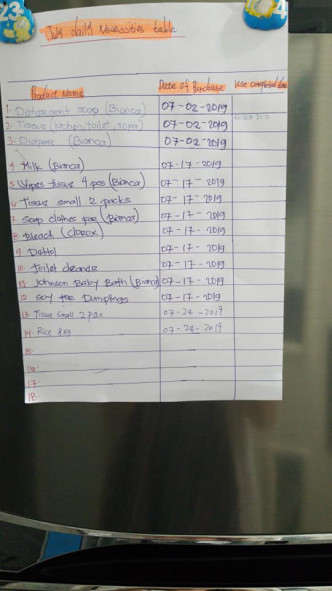 July daily Necessities table
Product Name Date of Purchase Use completed date
1. Dattergent soap (Bianca) 07-02-2019
2. Tissue (kitchen, toilet, 07-02-2019
3. Diapers (Bianca) 07-02-2019
4. Milk (Bianca) 07-17-2019
5. Wipes tissue 4 pcs (Bianca) 07-17-2019
6. Tissue small 2 packs 07-17-2019
7. Soap clothes (Bianca) 07-17-2019
8. Bleach (Clorox) 07-17-2019
9. Dattol 07-17-2019
10. Toilet 07-17-2019
11. Johnson Baby Bath (Bianca) 07-17-2019
12. Soy Dumplings 07-17-2019
13. Tissue Small 2 07-24-2019
14. Rice 07-24-2019
15.
16.
17.
18.